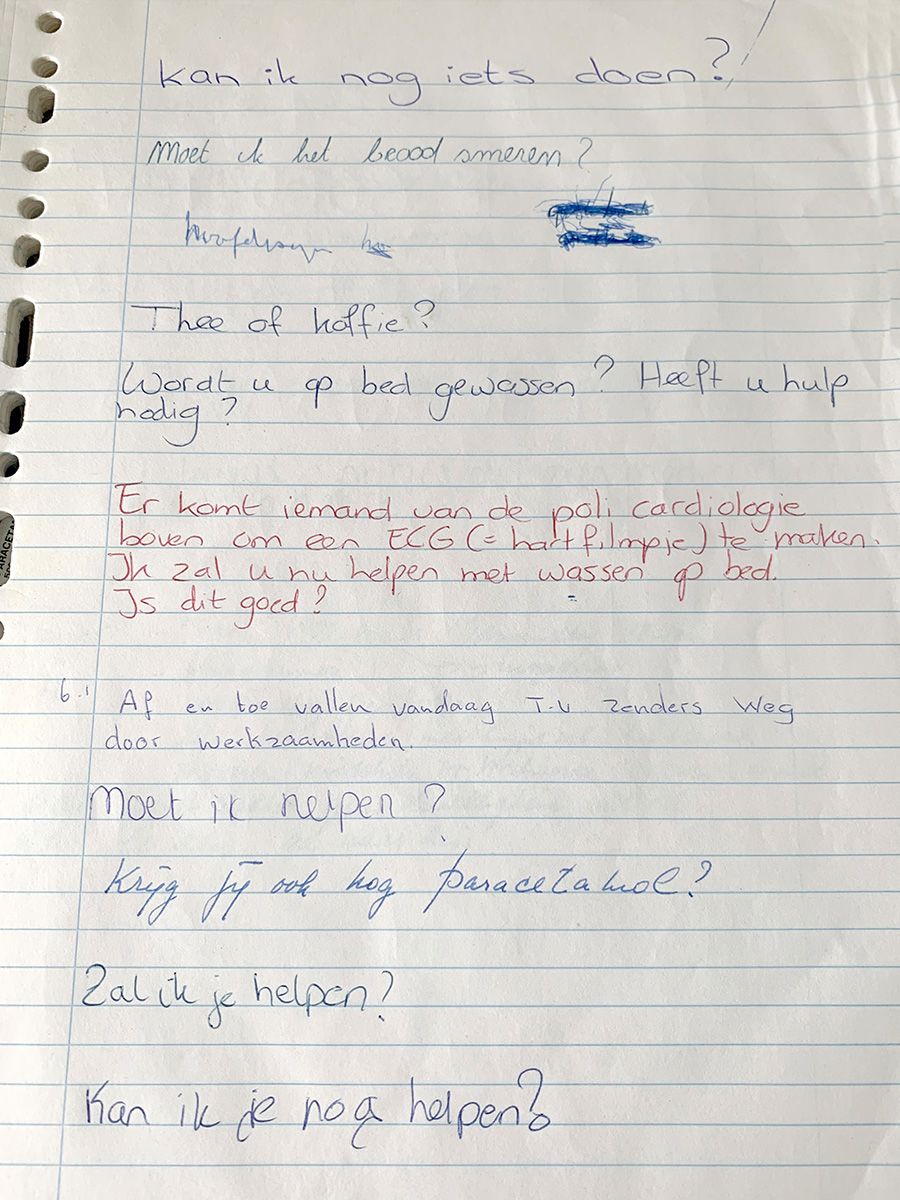 Kan ik nog iets doen?
Moet ik het brood smeren?
Thee of koffie?
Wordt u op bed gewassen? Heeft u hulp
nodig?
Er komt iemand van de poli cardiologie
boven om een ECG (= hartfilmpje) te maken.
Ik zal u nu helpen met wassen op bed.
Is dit goed?
6.1 Af en toe vallen vandaag T.V zenders weg
door werkzaamheden.
Moet ik helpen?
Krijg jij ook nog paracetamol?
Zal ik je helpen?
Kan ik je nog helpen?